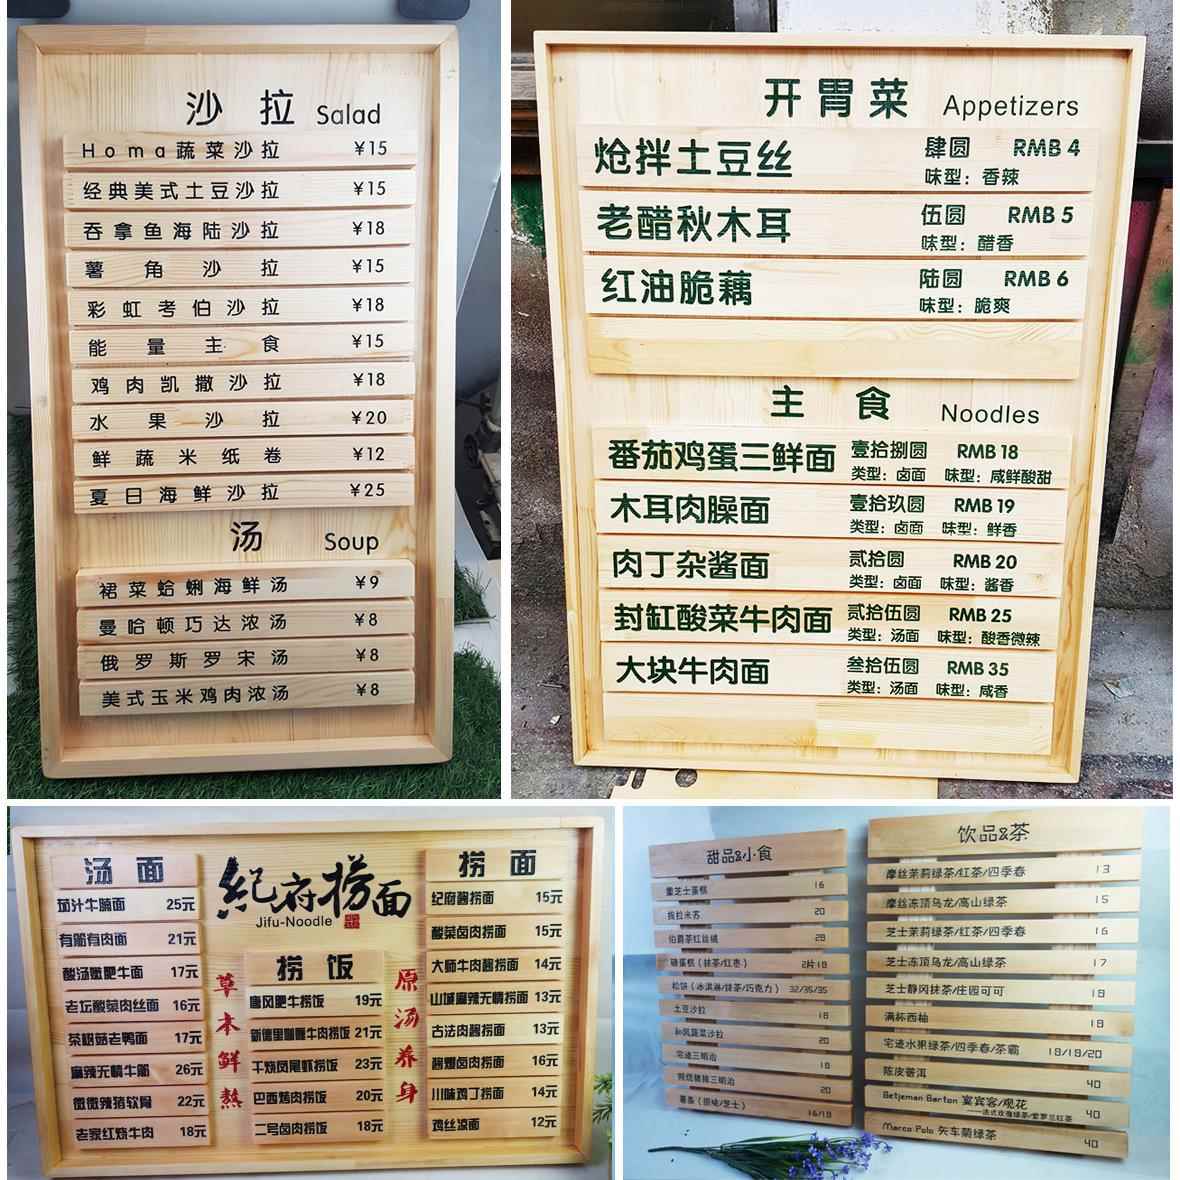 沙拉 Salad
Homa蔬菜沙拉 ¥15
经典美式土豆沙拉 ¥15
吞拿鱼海陆沙拉 ¥18
薯角沙拉 ¥15
彩虹考伯沙拉 ¥18
能量主食 ¥15
鸡肉凯撒沙拉 ¥18
水果沙拉 ¥20
鲜蔬米纸卷 ¥12
夏日海鲜沙拉 ¥25
汤 Soup
裙菜蛤蜊海鲜汤 ¥9
曼哈顿巧达浓汤 ¥8
俄罗斯罗宋汤 ¥8
美式玉米鸡肉浓汤 ¥8
开胃菜 Appetizers
炝拌土豆丝 肆圆 RMB 4
味型：香辣
老醋秋木耳 伍圆 RMB 5
味型：醋香
红油脆藕 陆圆 RMB 6
味型：脆爽
主食 Noodles
番茄鸡蛋三鲜面 壹拾捌圆 RMB 18
类型：卤面 味型：咸鲜酸甜
木耳肉臊面 壹拾玖圆 RMB 19
类型：卤面 味型：鲜香
肉丁杂酱面 贰拾圆 RMB 20
类型：卤面 味型：酱香
封缸酸菜牛肉面 贰拾伍圆 RMB 25
类型：汤面 味型：酸香微辣
大块牛肉面 叁拾伍圆 RMB 35
类型：汤面 味型：咸香
汤面
茄汁牛腩面 25元
有筋有肉面 21元
酸汤嫩肥牛面 17元
老坛酸菜肉丝面 16元
茶树菇老鸭面 17元
麻辣无情牛筋 26元
微微辣猪软骨 22元
老家红烧牛肉 18元
纪府捞面
Jifu-Noodle
草本鲜熬
捞饭
唐风肥牛捞饭 19元
新德里咖喱牛肉捞饭 21元
干烧凤尾虾捞饭 23元
巴西烤肉捞饭 20元
二号卤肉捞饭 18元
原汤养身
捞面
纪府酱捞面 15元
酸菜卤肉捞面 15元
大师牛肉酱捞面 14元
山城麻辣无情捞面 13元
古法肉酱捞面 13元
酱爆卤肉捞面 16元
川味鸡丁捞面 14元
鸡丝凉面 12元
甜品&小食
重芝士蛋糕 16
提拉米苏 20
伯爵茶红丝绒 28
磅蛋糕（抹茶/红枣） 2片18
松饼（冰淇淋/抹茶/巧克力） 32/35/35
土豆沙拉 18
和风蔬菜沙拉 20
宅迹三明治 18
照烧猪排三明治 20
薯条（原味/芝士） 16/18
饮品&茶
摩丝茉莉绿茶/红茶/四季春 13
摩丝冻顶乌龙/高山绿茶 15
芝士茉莉绿茶/红茶/四季春 16
芝士冻顶乌龙/高山绿茶 17
芝士静冈抹茶/庄园可可 18
满杯西柚 18
宅迹水果绿茶/四季春/茶霸 18/18/20
陈皮普洱 40
Betjeman Barton 宴宾客/观花 40
——法式玫瑰绿茶/紫罗兰红茶
Marco Polo 矢车菊绿茶 40